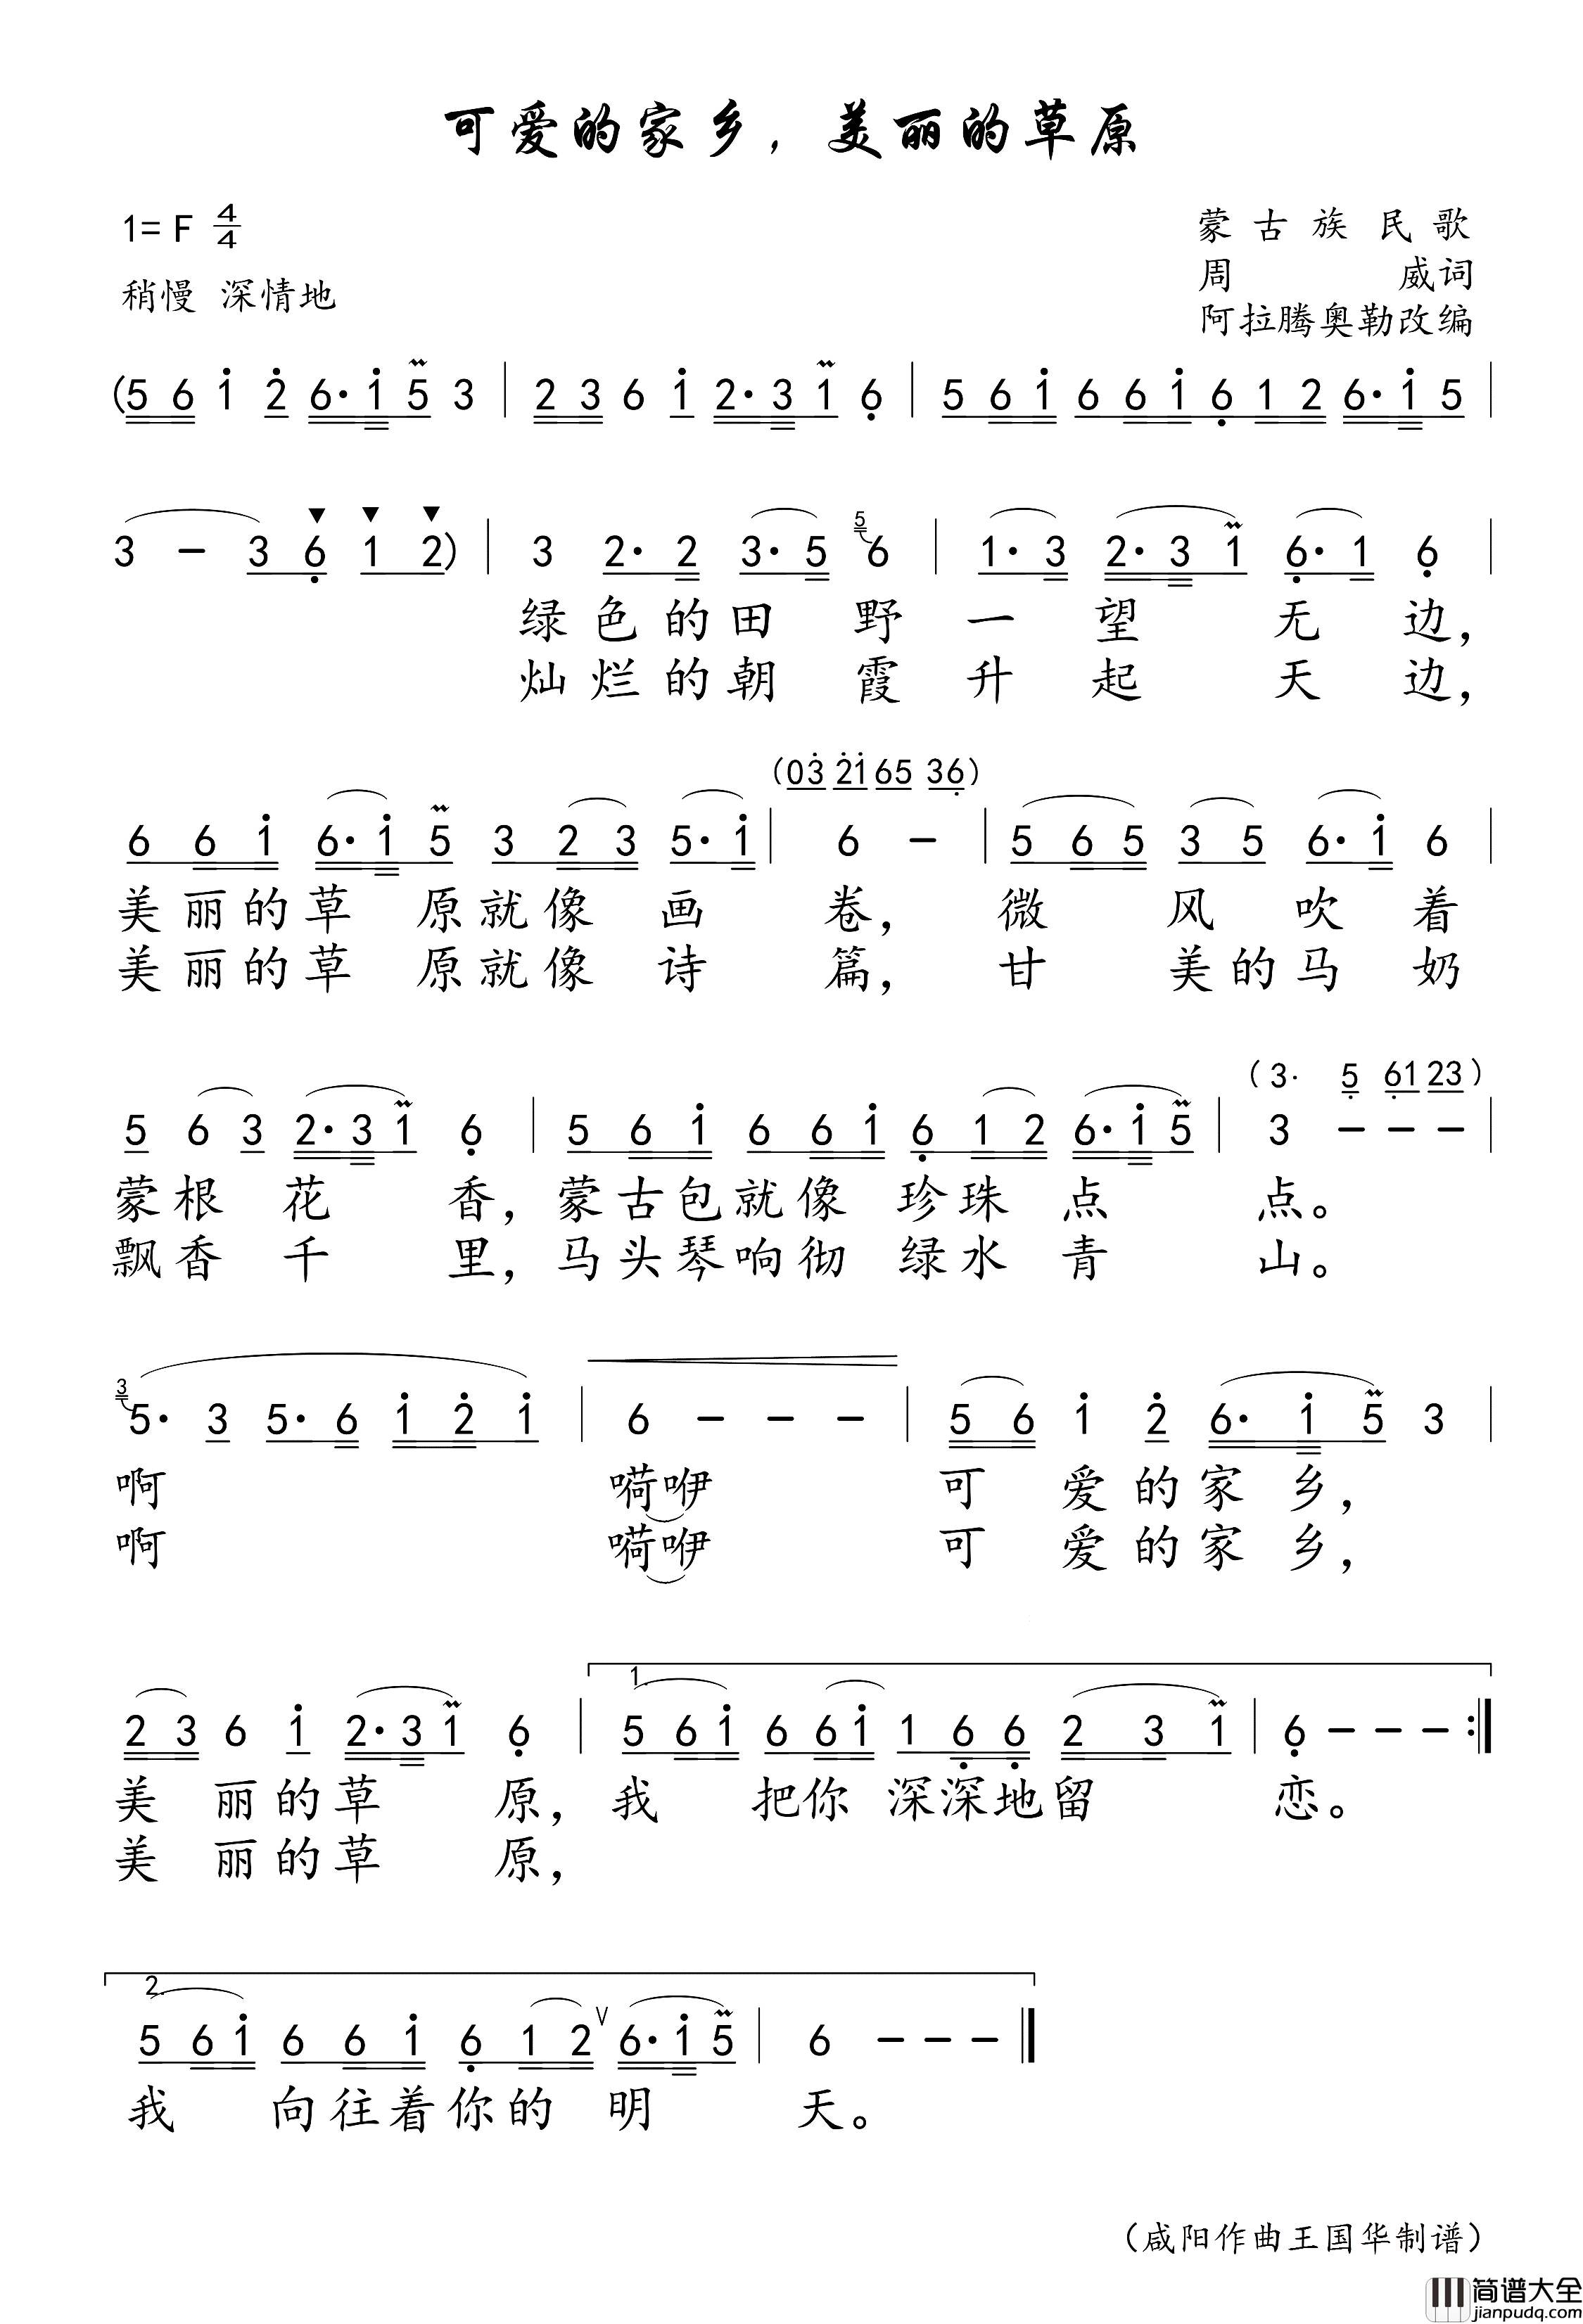 可爱的家乡，美丽的草原
1= F 4/4
蒙古族民歌
周 威词
稍慢 深情地
阿拉腾奥勒改编
(5 6 1̇ 2̇ 6· 1̇ 5 3 | 2 3 6 1̇ 2· 3 1 6̣ | 5 6 1̇ 6 6 1̇ 6̣ 1 2 6· 1̇ 5 |
3 － 3 6̣ 1 2) | 3 2· 2 3· 5 5 6 | 1· 3 2· 3 1 6̣· 1 6̣ |
绿色的田野一望无边，
灿烂的朝霞升起天边，
(0 3̇ 2̇ 1̇ 6 5 3 6̣)
6 6 1̇ 6· 1̇ 5 3 2 3 5· 1̇ | 6 － | 5 6 5 3 5 6· 1̇ 6 |
美丽的草原就像画卷，微风吹着
美丽的草原就像诗篇，甘美的马奶
(3· 5̣ 6̣ 1 2 3)
5 6 3 2· 3 1 6̣ | 5 6 1̇ 6 6 1̇ 6̣ 1 2 6· 1̇ 5 | 3 － － － |
蒙根花香，蒙古包就像珍珠点点。
飘香千里，马头琴响彻绿水青山。
3 5· 3 5· 6 1̇ 2̇ 1̇ | 6 － － － | 5 6 1̇ 2̇ 6· 1̇ 5 3 |
啊 嗬咿 可爱的家乡，
啊 嗬咿 可爱的家乡，
1.
2 3 6 1̇ 2· 3 1 6̣ | 5 6 1̇ 6 6 1̇ 1 6̣ 6̣ 2 3 1 | 6̣ － － － :|
美丽的草原，我把你深深地留恋。
美丽的草原，
2.
5 6 1̇ 6 6 1̇ 6̣ 1 2 V 6· 1̇ 5 | 6 － － － ‖
我向往着你的明天。
（咸阳作曲王国华制谱）
简谱大全
jianpudq.com